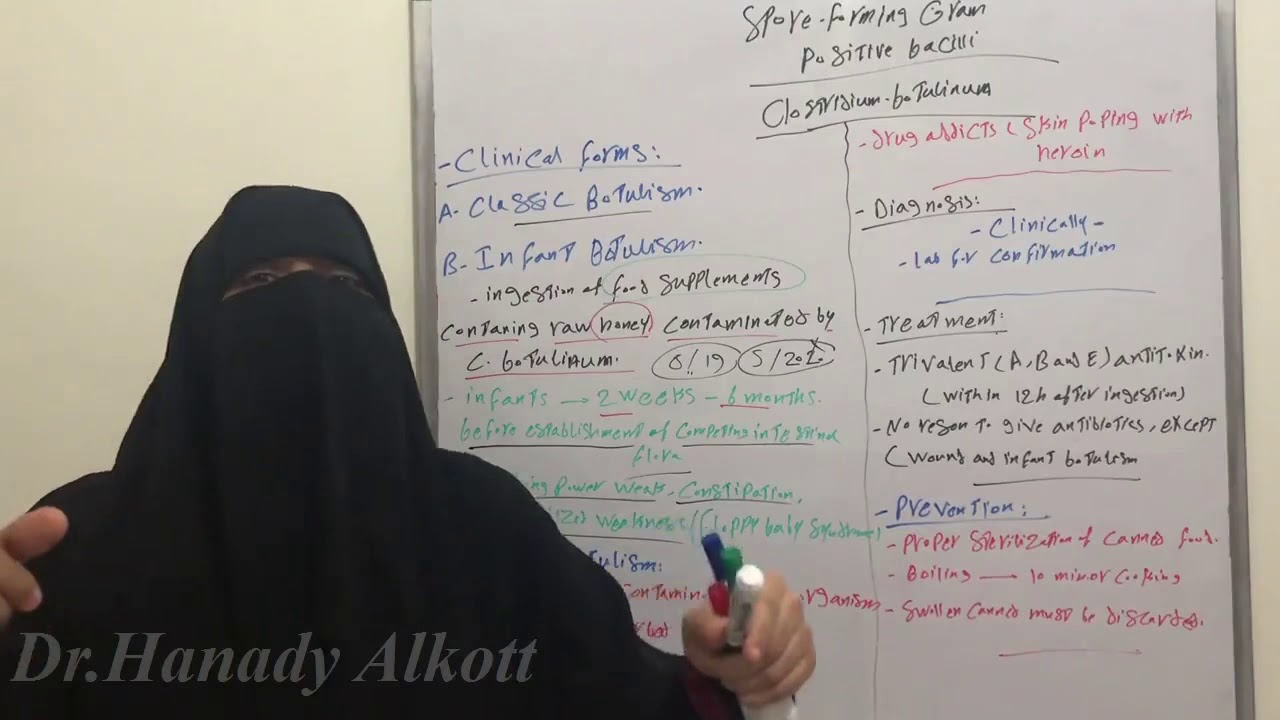 Spore-forming Gram
positive bacilli
Clostridium-botulinum
- Clinical forms:
A- Classic Botulism.
B- Infant Botulism.
- ingestion of food supplements
Contaning raw honey contaminated by
C. botulinum. 8/19 5/202
- infants → 2 weeks - 6 months.
before establishment of competing intestinal
flora
power weak, constipation,
weakness (floppy baby syndrome)
tulism:
organism
- Drug addicts ( skin poping with
heroin
- Diagnosis:
- Clinically -
- lab for confirmation
- Treatment:
- Trivalent (A, B and E) antitoxin.
( within 12h after ingestion)
- No reson to give antibiotics, except
( wound and infant botulism
- Prevention:
- Proper sterilization of canned food.
- Boiling → 10 min or cooking
- Swollen canned must be discarded.
Dr.Hanady Alkott